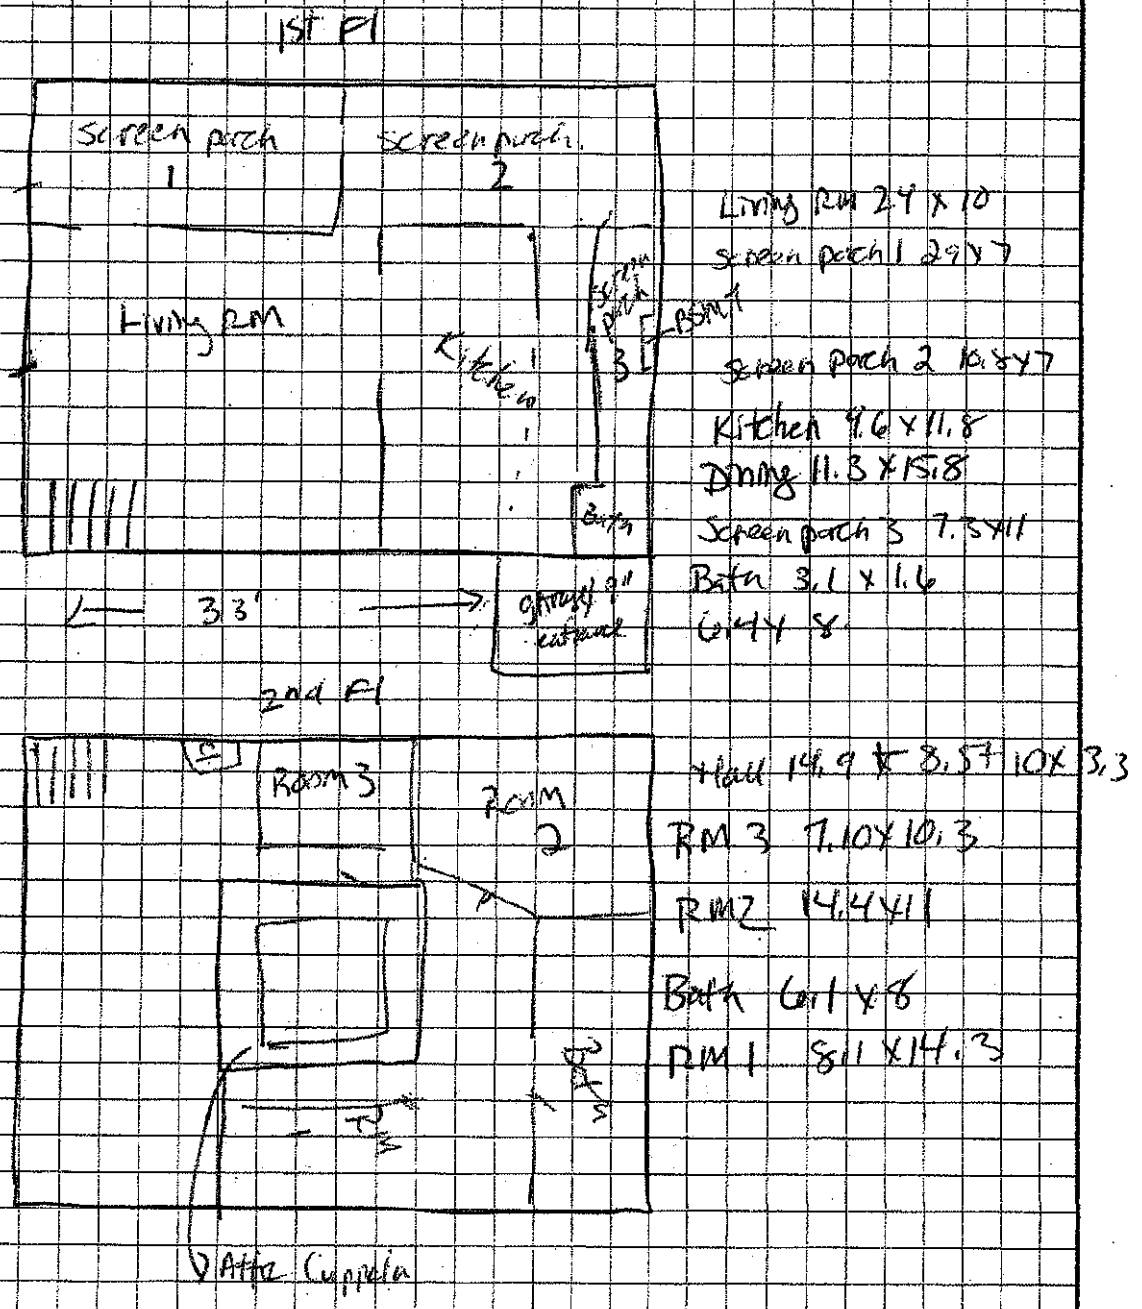 1st Fl
Screen porch
1
Screen porch.
2
Living RM
Kitchen
Screen
porch
3
BSMT
Bath
33'
garage
entrance
Living RM 24 x 10
Screen porch 1 29x7
Screen porch 2 10.8x7
Kitchen 9.6 x 11.8
Dining 11.3 x 15.8
Screen porch 3 7.3x11
Bath 3.1 x 1.6
6.4 x 8
2nd Fl
Room 3
Room
2
Bath
RM
1
Attic Cuppela
Hall 14.9 x 8.5+ 10x 3.3
RM 3 7.10x10.3
RM2 14.4x11
Bath 6.1 x 8
RM 1 8.11 x14.3